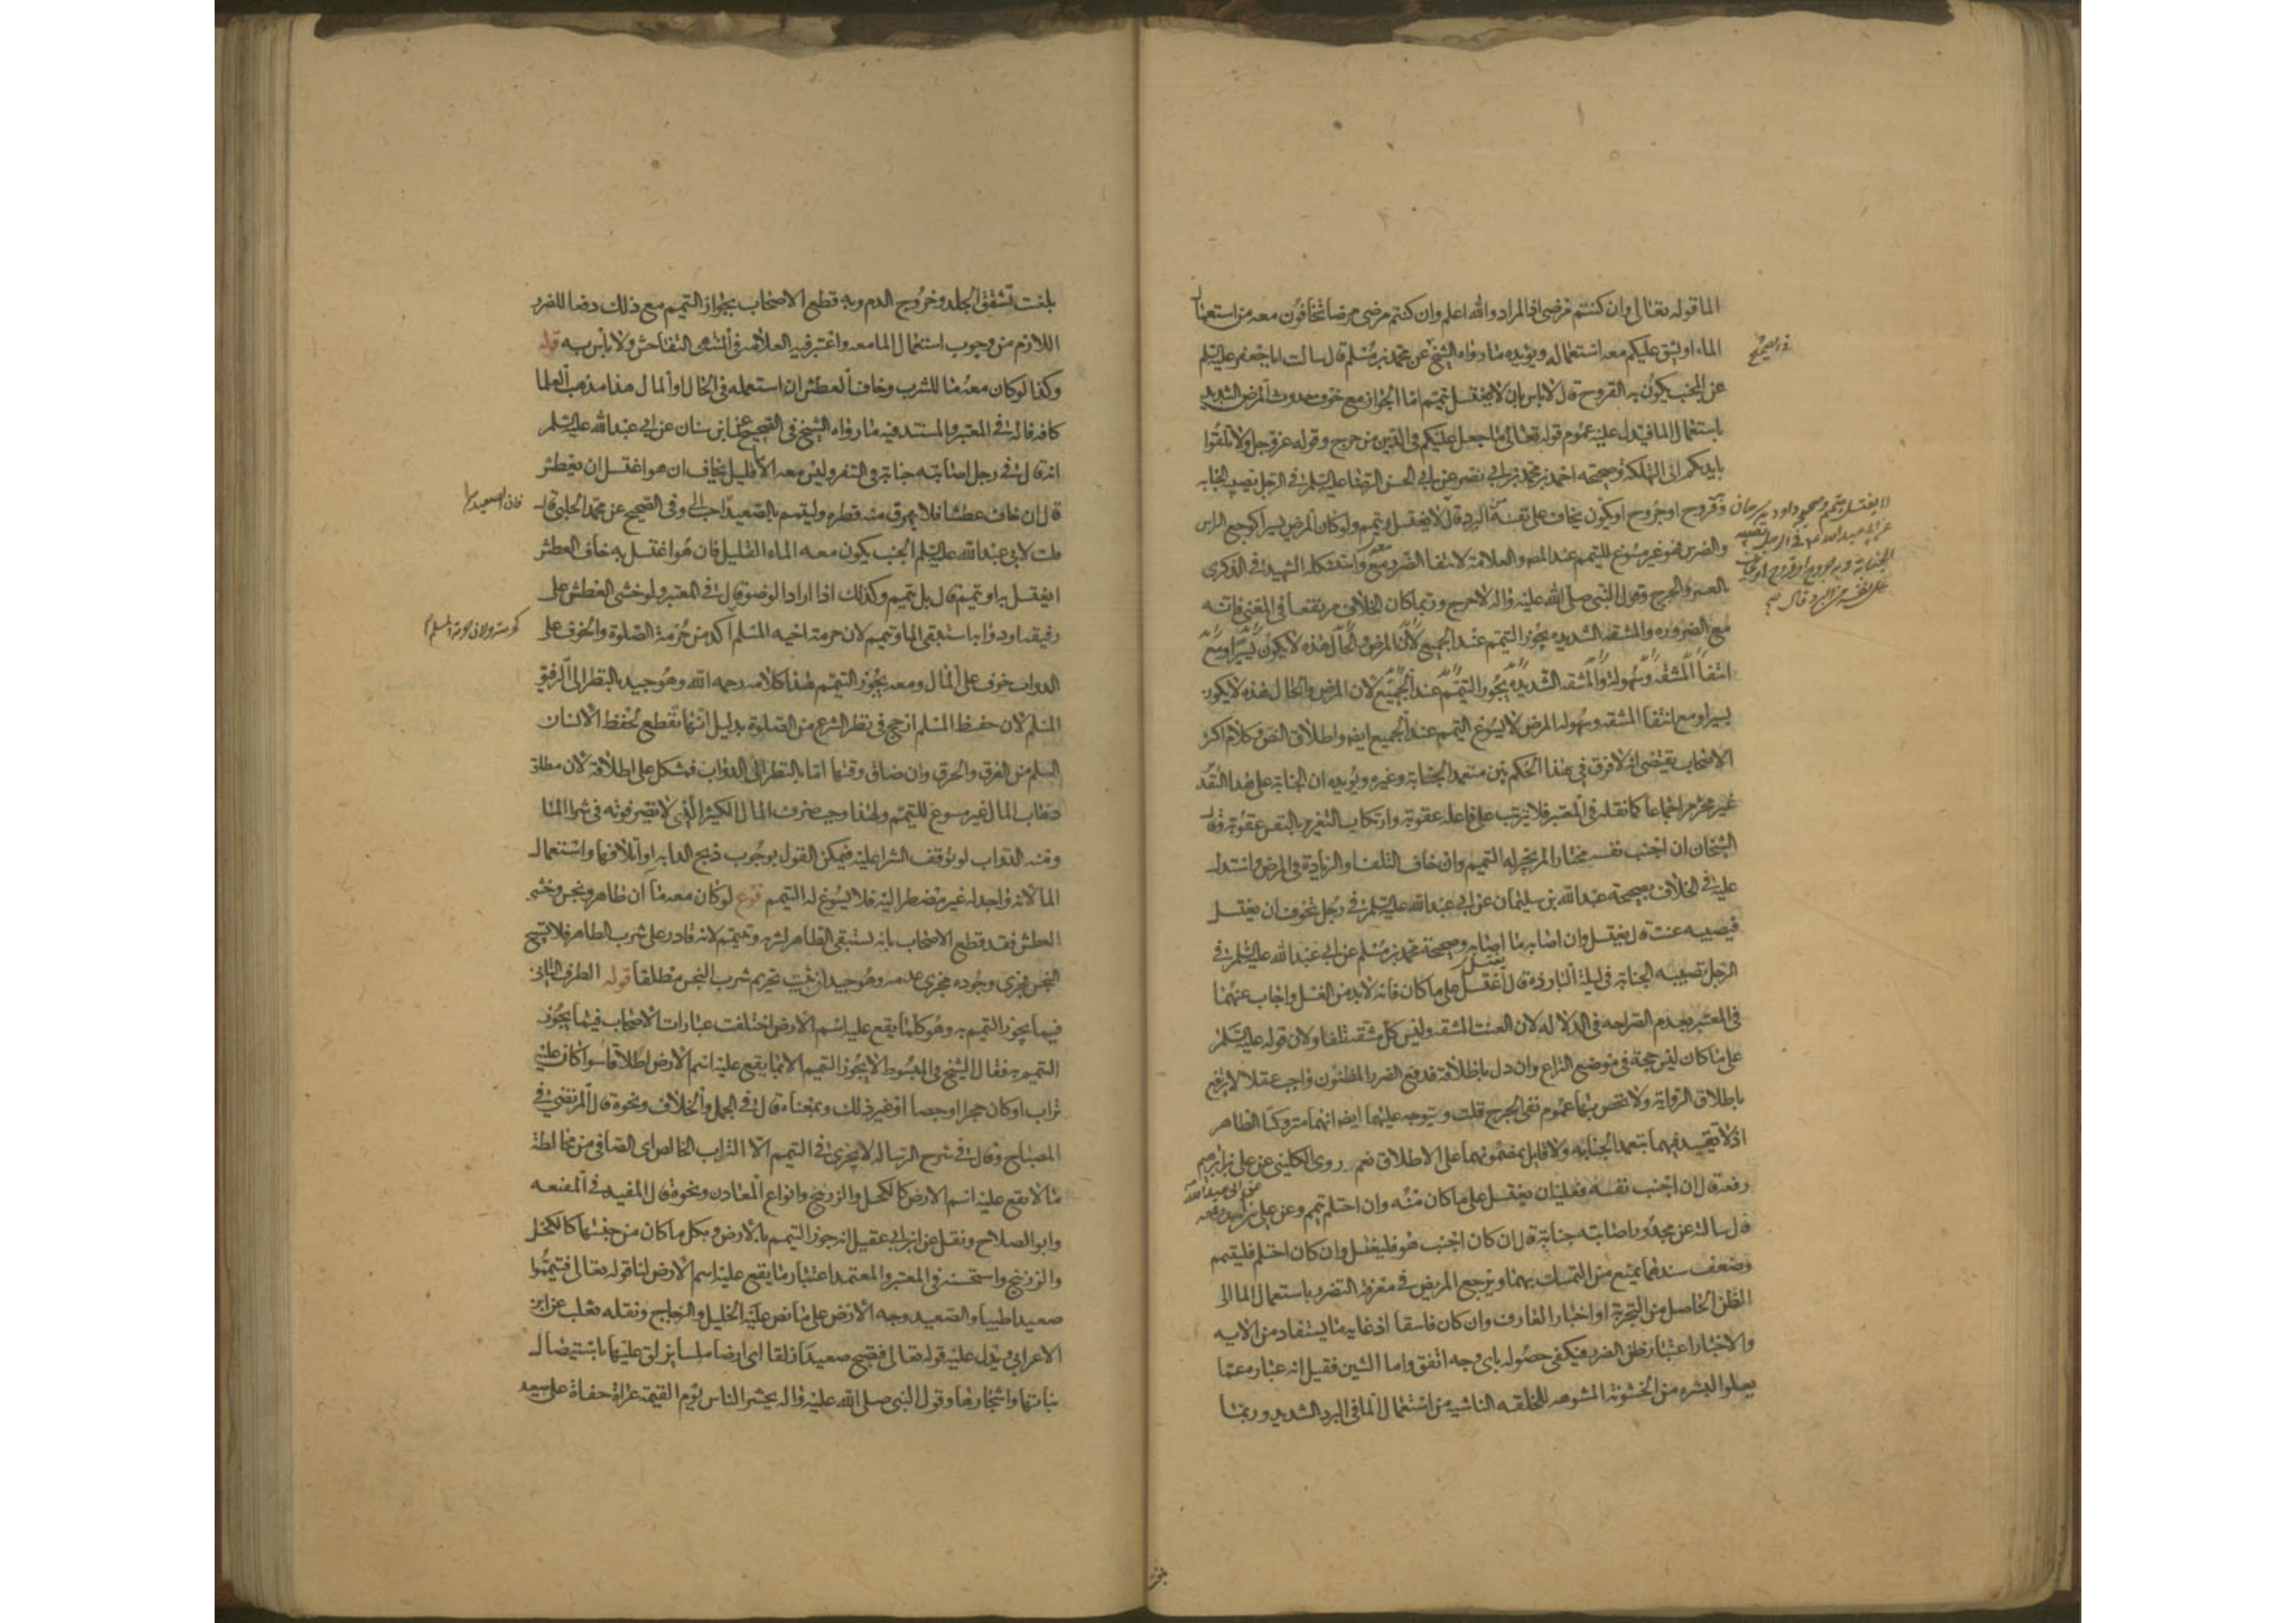 الما قوله تعالى وان كنتم مرضى اذ المراد والله اعلم وان كنتم مرضى مرضا تخافون معه من استعمال
الماء او يشق عليكم معه استعماله ويؤيده ما رواه الشيخ عن محمد بن مسلم قال سالت ابا جعفر عليه السلم
في الصحيح
عن الجنب يكون به القروح قال لا باس بان لا يغتسل يتيمم اما الجواز مع خوف حدوث المرض الشديد
باستعمال الما فيدل عليه عموم قوله تعالى ما جعل عليكم في الدين من حرج وقوله عز وجل ولا تلقوا
بايديكم الى التهلكة وصحيحة احمد بن محمد بن ابي نصر عن ابي الحسن الرضا عليه السلم في الرجل تصيبه الجنابه
وبه قروح او جروح او يكون يخاف على نفسه من البرد قال لا يغتسل ويتيمم ولو كان المرض يسيرا كوجع الراس
لا يغتسل يتيمم وصحيحة داود بن سرحان
عن ابي عبد الله في الرجل تصيبه
الجنابة وبه جروح او قروح او يخاف
على نفسه من البرد قال
والضرس فهو غير مسوغ للتيمم عند المصـ والعلامة لانتفا الضرر معه واستشكله الشهيد في الذكرى
بالعسر والحرج وقول النبي صلى الله عليه واله لا حرج وربما كان الخلاف مرتفعا في المعنى فانه
مع الضروره والمشقه الشديده يجوز التيمم عند الجميع لان المرض والحال هذه لا يكون يسيرا ومع
انتفا المشقه وسهولة والمشقه الشديده يجوز التيمم عند الجميع لان المرض والحال هذه لا يكون
يسيرا ومع انتفا المشقه وسهوله المرض لا يسوغ التيمم عند الجميع ايضا واطلاق النص وكلام اكثر
الاصحاب يقتضي انه لا فرق في هذا الحكم بين متعمد الجنابة وغيره ويؤيده ان الجنابة على هذا التقدير
غير محرم اجماعا كما نقله في المعتبر فلا يترتب على فاعله عقوبة وارتكاب التغرير بالنفس عقوبة وقال
الشيخان ان اجنب نفسه مختارا لم يجز له التيمم وان خاف التلف او الزيادة في المرض واستدل
عليه في الخلاف بصحيحة عبد الله بن سليمان عن ابي عبد الله عليه السلم في رجل تخوف ان يغتسل
فيصيبه عنت قال يغتسل وان اصابه ما اصابه وصحيحة محمد بن مسلم عن ابي عبد الله عليه السلم في
الرجل تصيبه الجنابة في ليلة الباردة قال اغتسل على ما كان فانه لا بد من الغسل واجاب عنهما
في المعتبر بعدم الصراحه في الدلاله لان العنت المشقه وليس كل مشقه تلفا ولان قوله عليه السلم
على ما كان ليس حجة في موضع النزاع وان دل باطلاقه فدفع الضرر المظنون واجب عقلا لا يرتفع
باطلاق الرواية ولا تخص بها عموم نفي الحرج قلت ويتوجه عليهما ايضا انهما متروكتا الظاهر
اذ لا تقييد فيهما بتعمد الجنابه ولا قايل بمضمونهما على الاطلاق نعم روى الكليني عن علي بن ابراهيم
رفعه قال ان اجنب نفسه فعليه ان يغتسل على ما كان منه وان احتلم تيمم وعن علي بن احمد رفعه
عن ابي عبد الله
قال سالته عن مجدور اصابته جنابة قال ان كان اجنب هو فليغتسل وان كان احتلم فليتيمم
وضعف سندهما يمنع من التمسك بهما ويرجع المريض في معرفة التضرر باستعمال الما الى
الظن الحاصل من التجربة او اخبار العارف وان كان فاسقا اذ غاية ما يستفاد من الايه
والاخبار اعتبار ظن الضرر فيكفي حصوله باى وجه اتفق واما الشين فقيل انه عبارة عما
يعلوا البشره من الخشونة المشوهه للخلقه الناشيه من استعمال الما في البرد الشديد وربما
بلغت
بلغت تشقق الجلد وخروج الدم وبه قطع الاصحاب بجواز التيمم مع ذلك دفعا للضرر
اللازم من وجوب استعمال الما معه واعتبر فيه العلامة في المنتهى التفاحش ولا باس به قوله
وكذا لو كان معه ما للشرب وخاف العطش ان استعمله في الحال او المال هذا مذهب العلما
كافه قاله في المعتبر والمستند فيه ما رواه الشيخ في الصحيح عن ابن سنان عن ابي عبد الله عليه السلم
انه قال في رجل اصابته جنابة في السفر وليس معه الا قليل يخاف ان هو اغتسل ان يعطش
قال ان خاف عطشا فلا يهرق منه قطره وليتيمم بالصعيد احب الى وفي الصحيح عن محمد الحلبي قال
فان الصعيد
قلت لابي عبد الله عليه السلم الجنب يكون معه الماء القليل فان هو اغتسل به خاف العطش
ايغتسل به او يتيمم قال بل يتيمم وكذلك اذا اراد الوضوء قال في المعتبر ولو خشى العطش على
رفيقه او دوابه استبقى الما وتيمم لان حرمة اخيه المسلم اكد من حرمة الصلوة والخوف على
كحرمته ولان حرمة المسلم
الدواب خوف على المال ومعه يجوز التيمم هذا كلامه رحمه الله وهو جيد بالنظر الى الرفيق
المسلم لان حفظ المسلم ارجح في نظر الشرع من الصلوة بدليل انها تقطع لحفظ الانسان
المسلم من الغرق والحرق وان ضاق وقتها اما بالنظر الى الدواب فمشكل على اطلاقه لان مطلق
ذهاب المال غير مسوغ للتيمم ولهذا وجب صرف المال الكثير الذي لا يضر فوته في شرا الما
ومنه الدواب لو توقف الشرا عليه فيمكن القول بوجوب ذبح الدابه او اتلافها واستعمال
الما لانه واجد له غير مضطر اليه فلا يسوغ له التيمم فرع لو كان معه ماآن طاهر ونجس وخشي
العطش فقد قطع الاصحاب بانه يستبقي الطاهر لشربه ويتيمم لانه قادر على شرب الطاهر فلا يستبيح
النجس فجرى وجوده مجرى عدمه وهو جيد ان ثبت تحريم شرب النجس مطلقا قوله الطرف الثاني
فيما يجوز التيمم به وهو كلما يقع عليه اسم الارض اختلفت عبارات الاصحاب فيما يجوز
التيمم به فقال الشيخ في المبسوط لا يجوز التيمم الا بما يقع عليه اسم الارض اطلاقا سوا كان عليه
تراب او كان حجرا او جصا او غير ذلك وبمعناه قال في الجمل والخلاف ونحوه قال المرتضى في
المصباح وقال في شرح الرساله لا يجزى في التيمم الا التراب الخالص اى الصافي من مخالطة
ما لا يقع عليه اسم الارض كالكحل والزرنيخ وانواع المعادن ونحوه قال المفيد في المقنعه
وابو الصلاح ونقل عن ابن ابي عقيل انه جوز التيمم بالارض وبكل ما كان من جنسها كالكحل
والزرنيخ واستحسنه في المعتبر والمعتمد اعتبار ما يقع عليه اسم الارض لنا قوله تعالى فتيمموا
صعيدا طيبا والصعيد وجه الارض على ما نص عليه الخليل والزجاج ونقله ثعلب عن ابن
الاعرابي ويدل عليه قوله تعالى فتصبح صعيدا زلقا اى ارضا ملسا يزلق عليها باستيصال
نباتها واشجارها وقول النبي صلى الله عليه واله يحشر الناس يوم القيمة عراة حفاة على صعيد